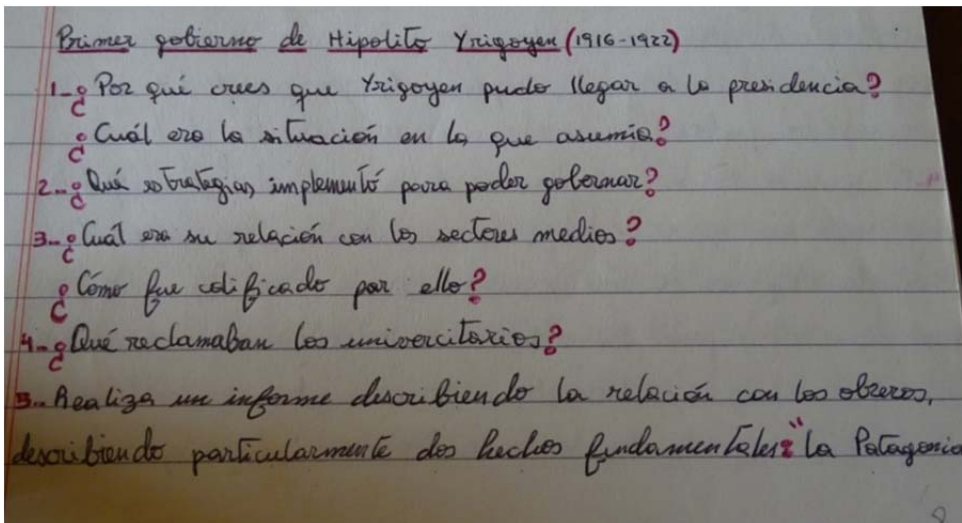 Primer gobierno de Hipolito Yrigoyen (1916-1922)
1-¿Por qué crees que Yrigoyen pudo llegar a la presidencia?
¿Cuál era la situación en la que asumía?
2-¿Qué estrategias implementó para poder gobernar?
3-¿Cuál era su relación con los sectores medios?
¿Cómo fue calificado por ello?
4-¿Qué reclamaban los univercitarios?
5-Realiza un informe describiendo la relación con los obreros,
describiendo particularmente dos hechos fundamentales: "La Patagonia